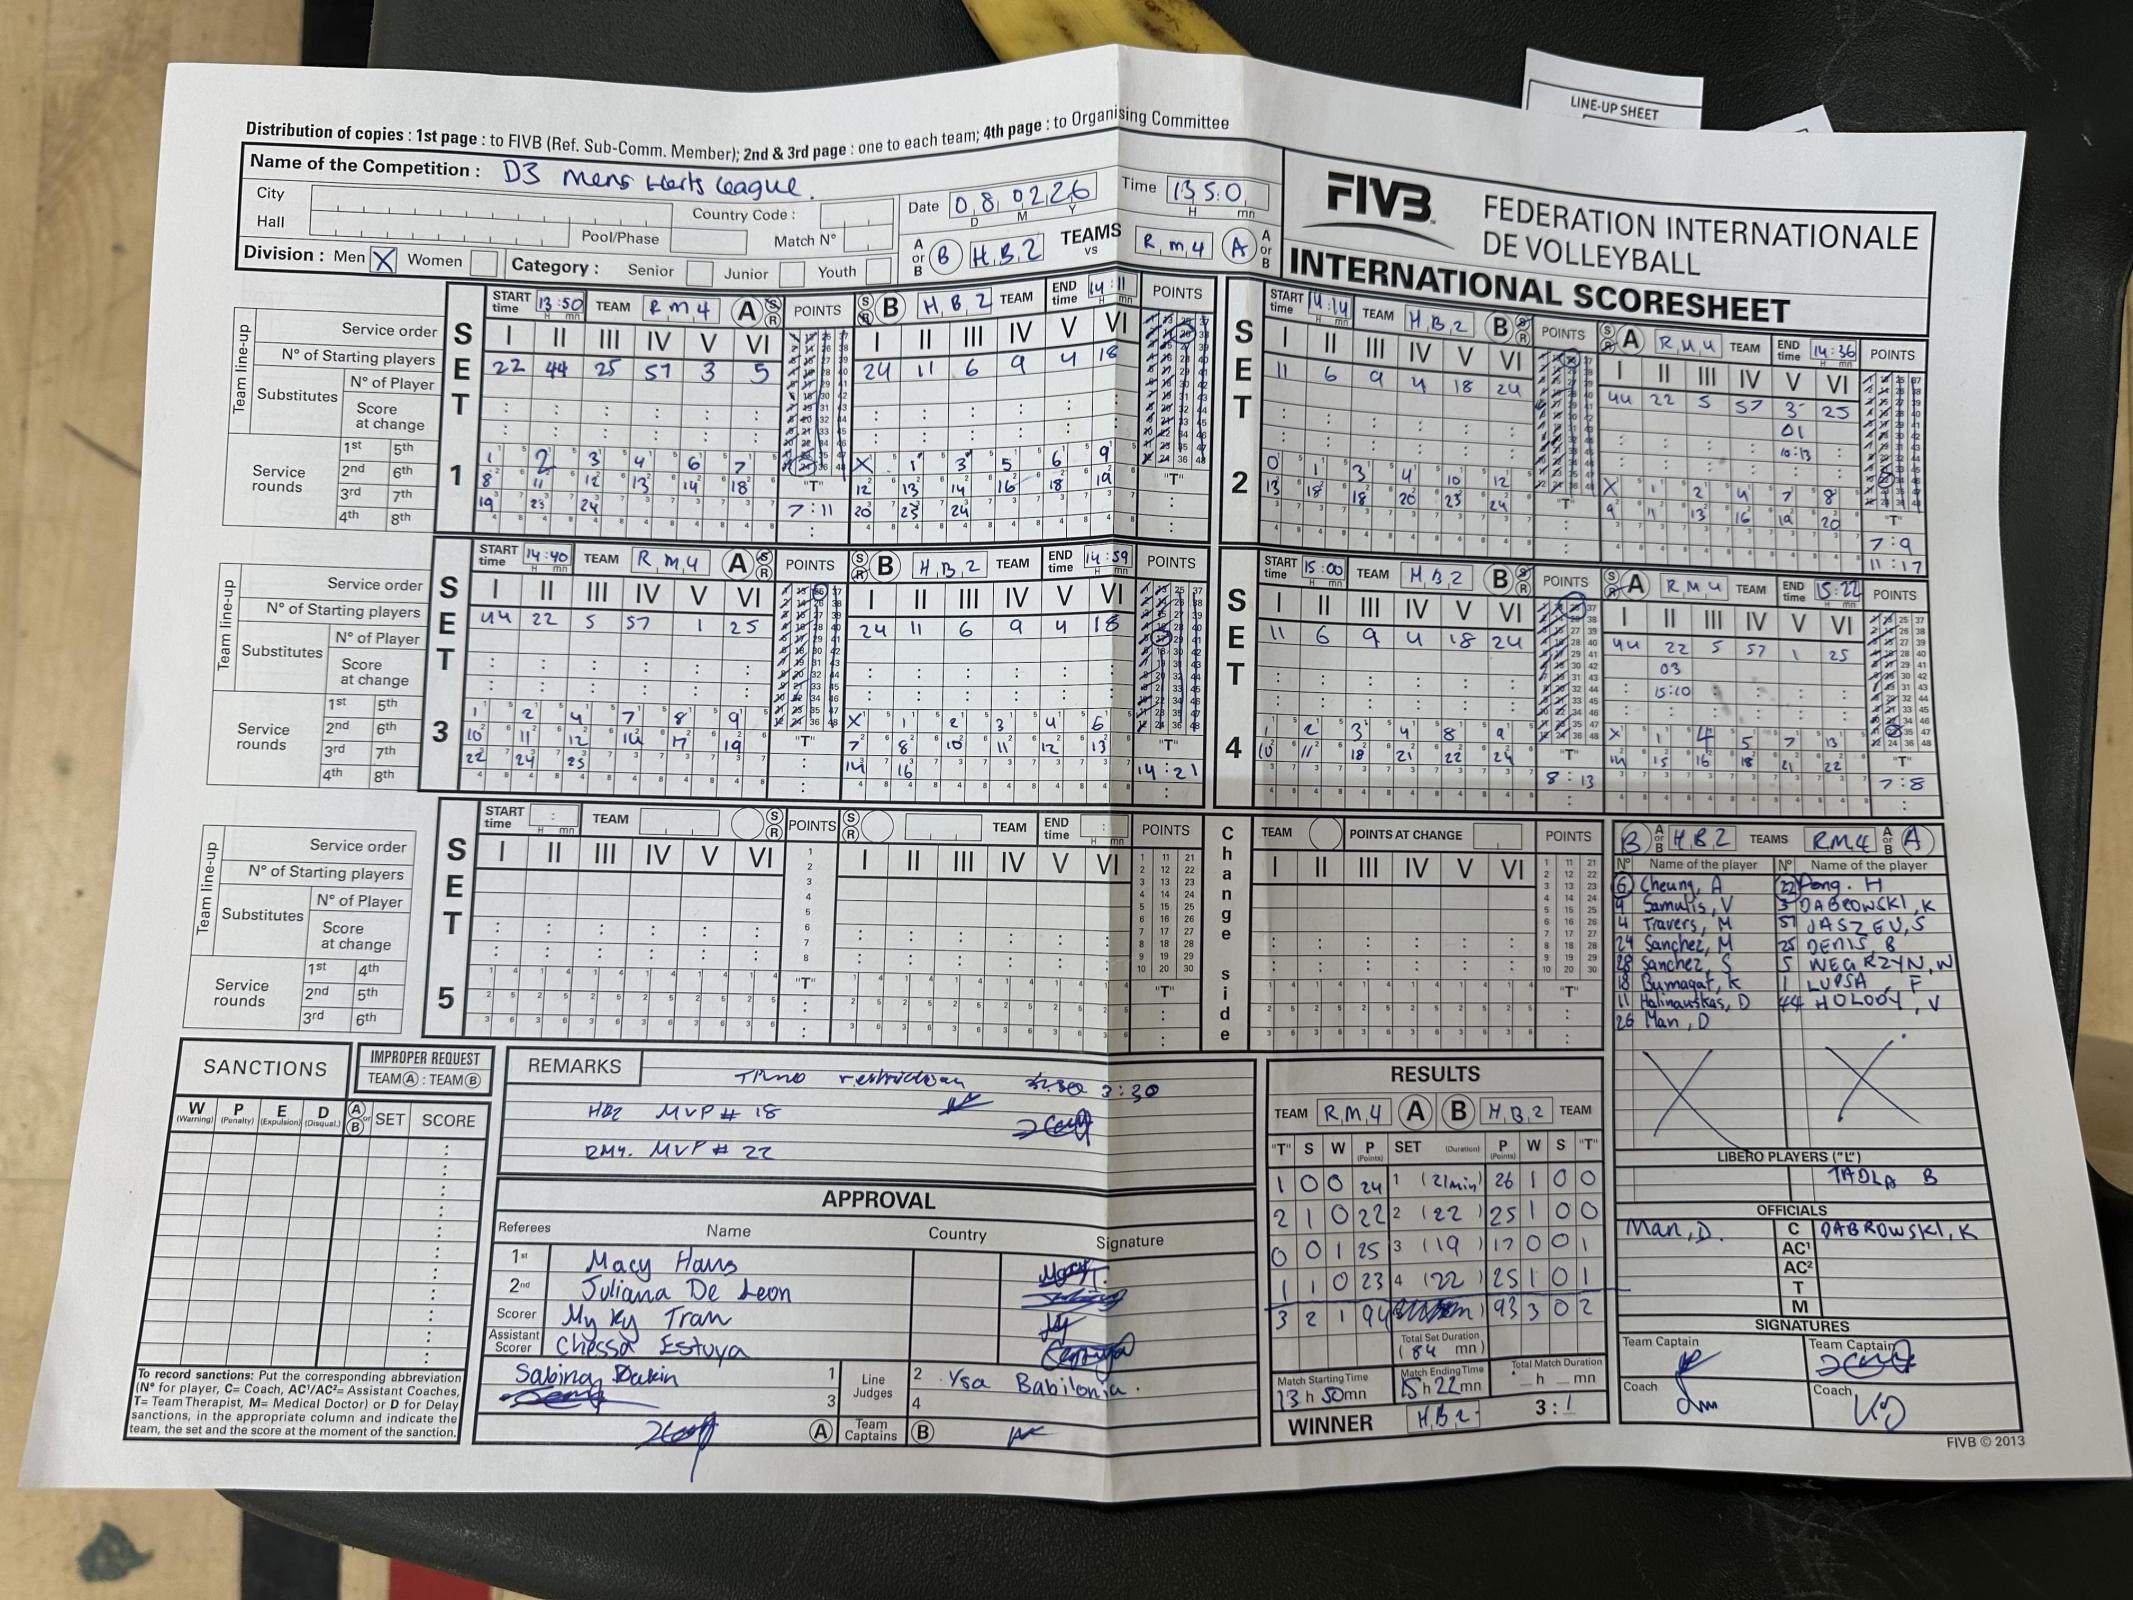 LINE-UP SHEET
Distribution of copies : 1st page : to FIVB (Ref. Sub-Comm. Member); 2nd & 3rd page : one to each team; 4th page : to Organising Committee
Name of the Competition : D3 Mens Herts League.
City
Country Code :
Hall
Pool/Phase
Match N°
Division : Men X Women
Category : Senior Junior Youth
Date 08 02 26
D M Y
Time 13 50
H mn
A or B B H.B.2 TEAMS vs R.M.4 A A or B
FIVB
FEDERATION INTERNATIONALE
DE VOLLEYBALL
INTERNATIONAL SCORESHEET
Team line-up
Service order
N° of Starting players
Substitutes
N° of Player
Score at change
Service rounds
1st 5th
2nd 6th
3rd 7th
4th 8th
SET 1
START time 13:50 TEAM R.M.4 A S R POINTS
I II III IV V VI
22 44 25 57 3 5
1 2 3 4 6 7
8 11 12 13 14 18
19 23 24
"T"
7:11
S R B H.B.2 TEAM END time 14:11 POINTS
I II III IV V VI
24 11 6 9 4 18
X 1 3 5 6 9
12 13 14 16 18 19
20 23 24
"T"
SET 2
START time 14:14 TEAM H.B.2 B POINTS
I II III IV V VI
11 6 9 4 18 24
0 1 3 4 10 12
13 18 18 20 23 24
"T"
A R.M.4 TEAM END time 14:36 POINTS
I II III IV V VI
44 22 5 57 3 25
01
10:13
X 1 2 4 7 8
9 11 13 16 19 20
"T"
7:9
11:17
Team line-up
Service order
N° of Starting players
Substitutes
N° of Player
Score at change
Service rounds
1st 5th
2nd 6th
3rd 7th
4th 8th
SET 3
START time 14:40 TEAM R.M.4 A POINTS
I II III IV V VI
44 22 5 57 1 25
1 2 4 7 8 9
10 11 12 14 17 19
22 24 25
"T"
B H.B.2 TEAM END time 14:59 POINTS
I II III IV V VI
24 11 6 9 4 18
X 1 2 3 4 6
7 8 10 11 12 13
14 16
"T"
14:21
SET 4
START time 15:00 TEAM H.B.2 B POINTS
I II III IV V VI
11 6 9 4 18 24
1 2 3 4 8 9
10 11 18 21 22 24
"T"
8:13
A R.M.4 TEAM END time 15:22 POINTS
I II III IV V VI
44 22 5 57 1 25
03
15:10
X 1 4 5 7 13
14 15 16 18 21 22
"T"
7:8
Team line-up
Service order
N° of Starting players
Substitutes
N° of Player
Score at change
Service rounds
1st 4th
2nd 5th
3rd 6th
SET 5
START time TEAM POINTS
I II III IV V VI
"T"
TEAM END time POINTS
I II III IV V VI
"T"
Change side
TEAM POINTS AT CHANGE POINTS
I II III IV V VI
"T"
B A or B H.B.2 TEAMS R.M.4 A or B A
N° Name of the player N° Name of the player
6 Cheung, A 22 Pong. H
9 Samulis, V 3 DABROWSKI, K
4 Travers, M 57 JASZEV, S
24 Sanchez, M 25 DENIS, B
28 Sanchez, S 5 WEGRZYN, W
18 Bumagat, K 1 LUPSA, F
11 Halinauskas, D 44 HOLODY, V
26 Man, D
LIBERO PLAYERS ("L")
TADLA B
OFFICIALS
Man, D. C DABROWSKI, K
AC1
AC2
T
M
SIGNATURES
Team Captain Team Captain
Coach Coach
SANCTIONS
IMPROPER REQUEST
TEAM A : TEAM B
W (Warning) P (Penalty) E (Expulsion) D (Disqual.) A or B SET SCORE
To record sanctions: Put the corresponding abbreviation
(N° for player, C= Coach, AC1/AC2= Assistant Coaches,
T= Team Therapist, M= Medical Doctor) or D for Delay
sanctions, in the appropriate column and indicate the
team, the set and the score at the moment of the sanction.
REMARKS
restriction 3:30
HB2 MVP # 18
RM4. MVP # 22
APPROVAL
Referees Name Country Signature
1st Macy Hans
2nd Juliana De Leon
Scorer My Ky Tran
Assistant Scorer Chessa Estuya
Sabina Dakin 1 Line Judges 2 Ysa Babilonia.
3 4
A Team Captains B
RESULTS
TEAM R.M.4 A B H.B.2 TEAM
"T" S W P (Points) SET (Duration) P (Points) W S "T"
1 0 0 24 1 (21min) 26 1 0 0
2 1 0 22 2 (22) 25 1 0 0
0 0 1 25 3 (19) 17 0 0 1
1 1 0 23 4 (22) 25 1 0 1
3 2 1 94 93 3 0 2
Total Set Duration
(84 mn)
Match Starting Time 13 h 50 mn
Match Ending Time 15 h 22 mn
Total Match Duration h mn
WINNER H.B.2 3 : 1
FIVB © 2013